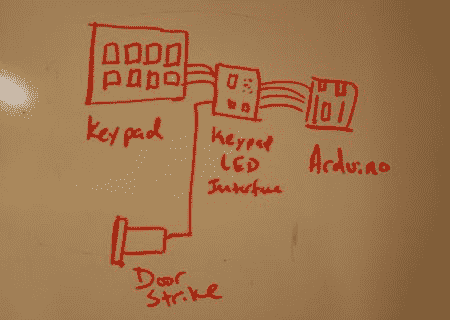 Keypad
Keypad
LED
Interface
Arduino
Door
Strike